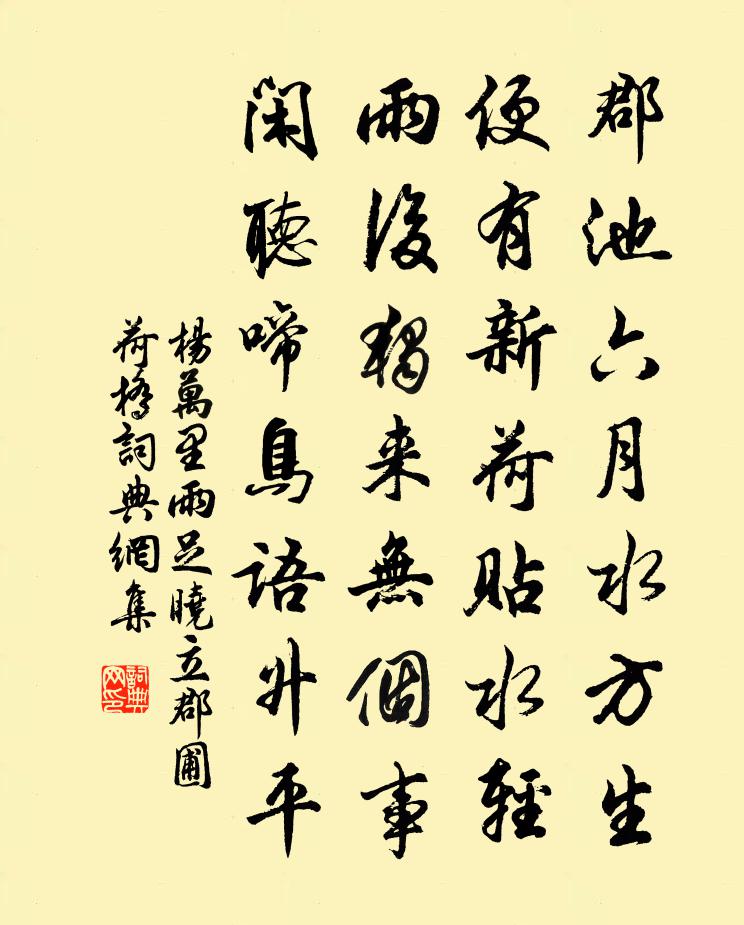 郡池六月水方生
便有新荷貼水輕
雨後獨来無個事
閑聽啼鳥語升平
楊萬里雨足曉立郡圃
荷橋詞典網集
詞典
网印